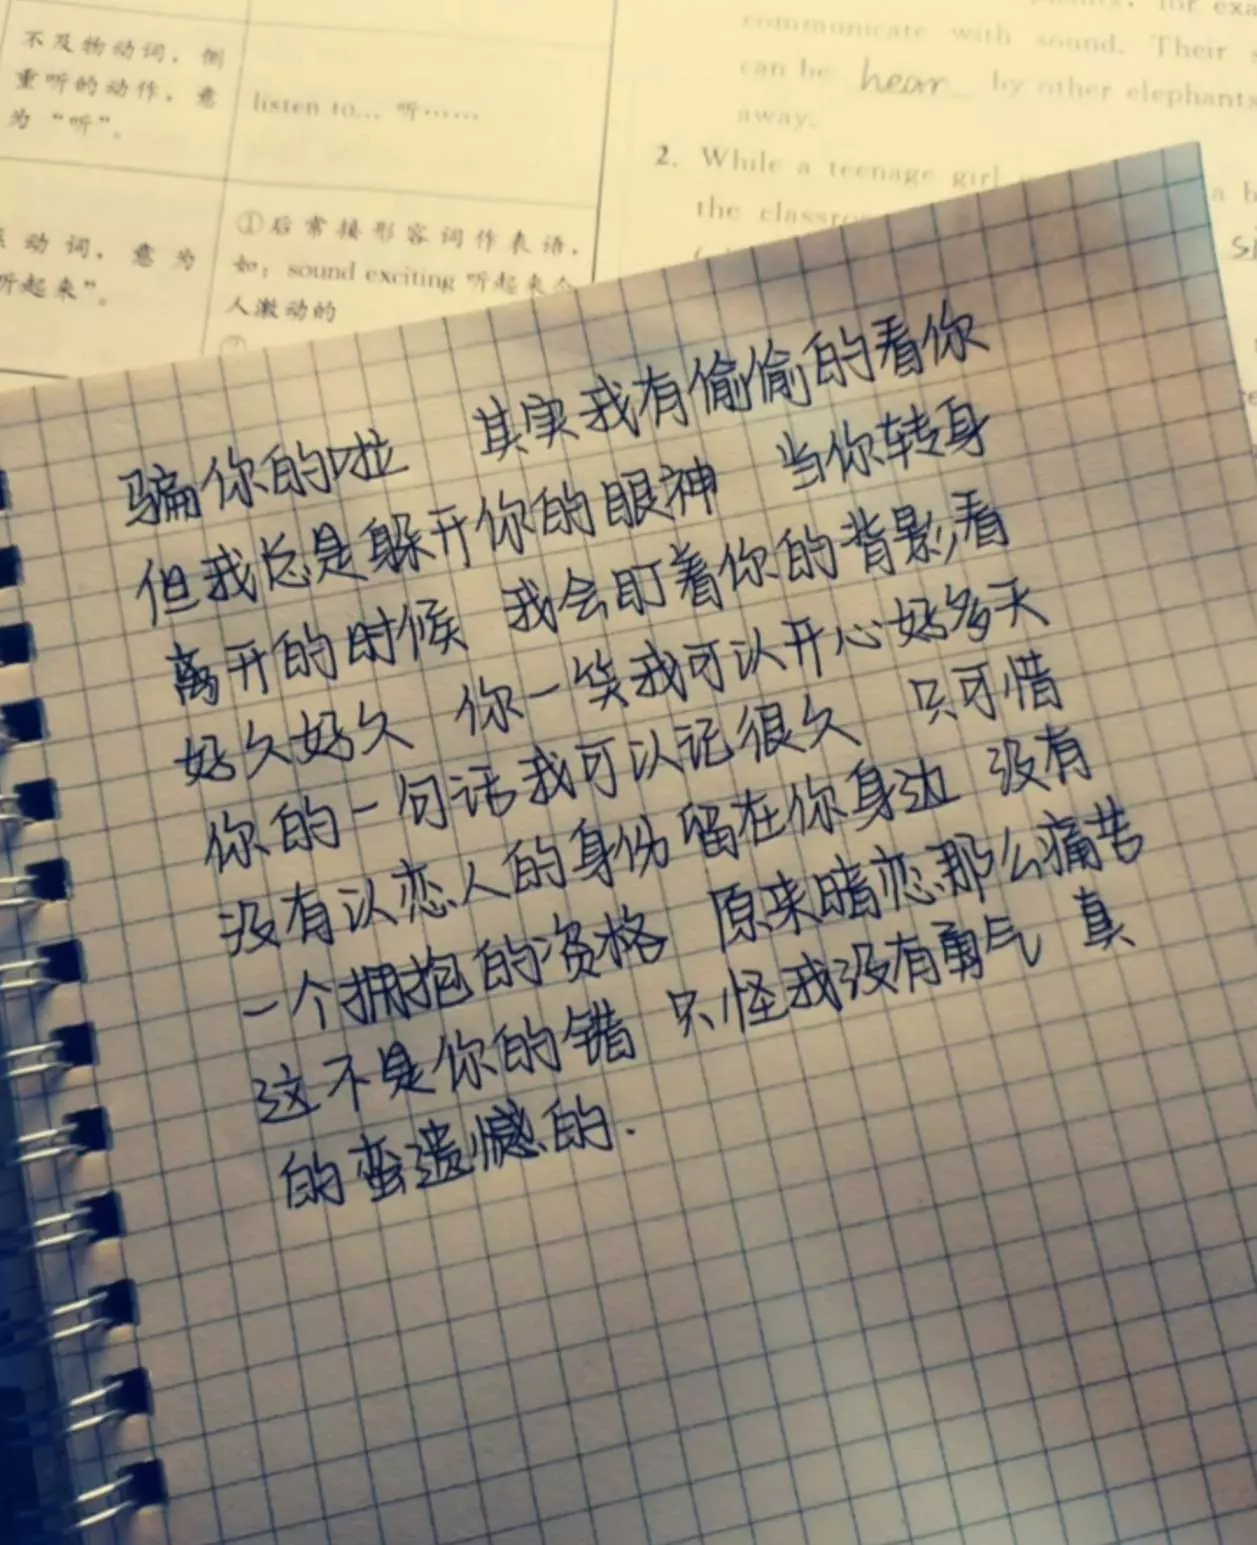 不及物动词，侧
重听的动作，意
为“听”。
listen to... 听……
动词，意为
听起来”。
①后常接形容词作表语，
如：sound exciting 听起来令
人激动的
②
communicate with sound. Their
can be hear by other elephants
away.
2. While a teenage girl
the classro
骗你的啦 其实我有偷偷的看你
但我总是躲开你的眼神 当你转身
离开的时候 我会盯着你的背影看
好久好久 你一笑我可以开心好多天
你的一句话我可以记很久 只可惜
没有以恋人的身份留在你身边 没有
一个拥抱的资格 原来暗恋那么痛苦
这不是你的错 只怪我没有勇气 真
的蛮遗憾的.